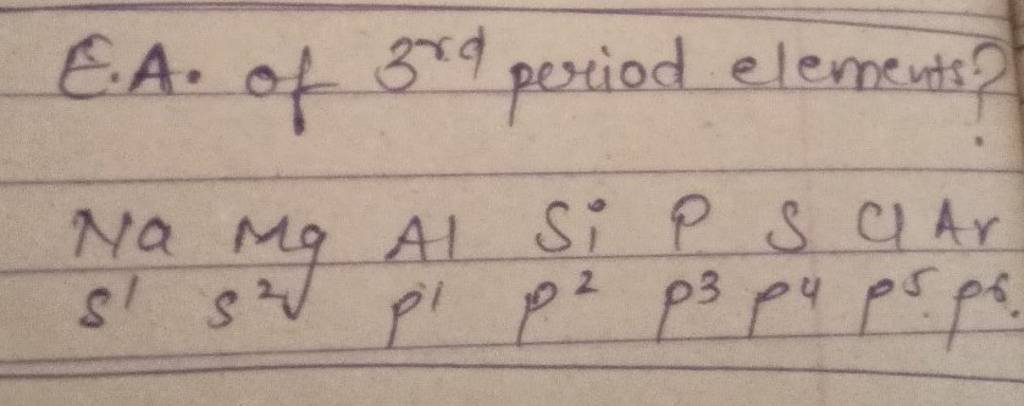 E.A. of 3rd period elements?
Na Mg Al Si P S Cl Ar
s¹ s² p¹ p² p³ p⁴ p⁵. p⁶.